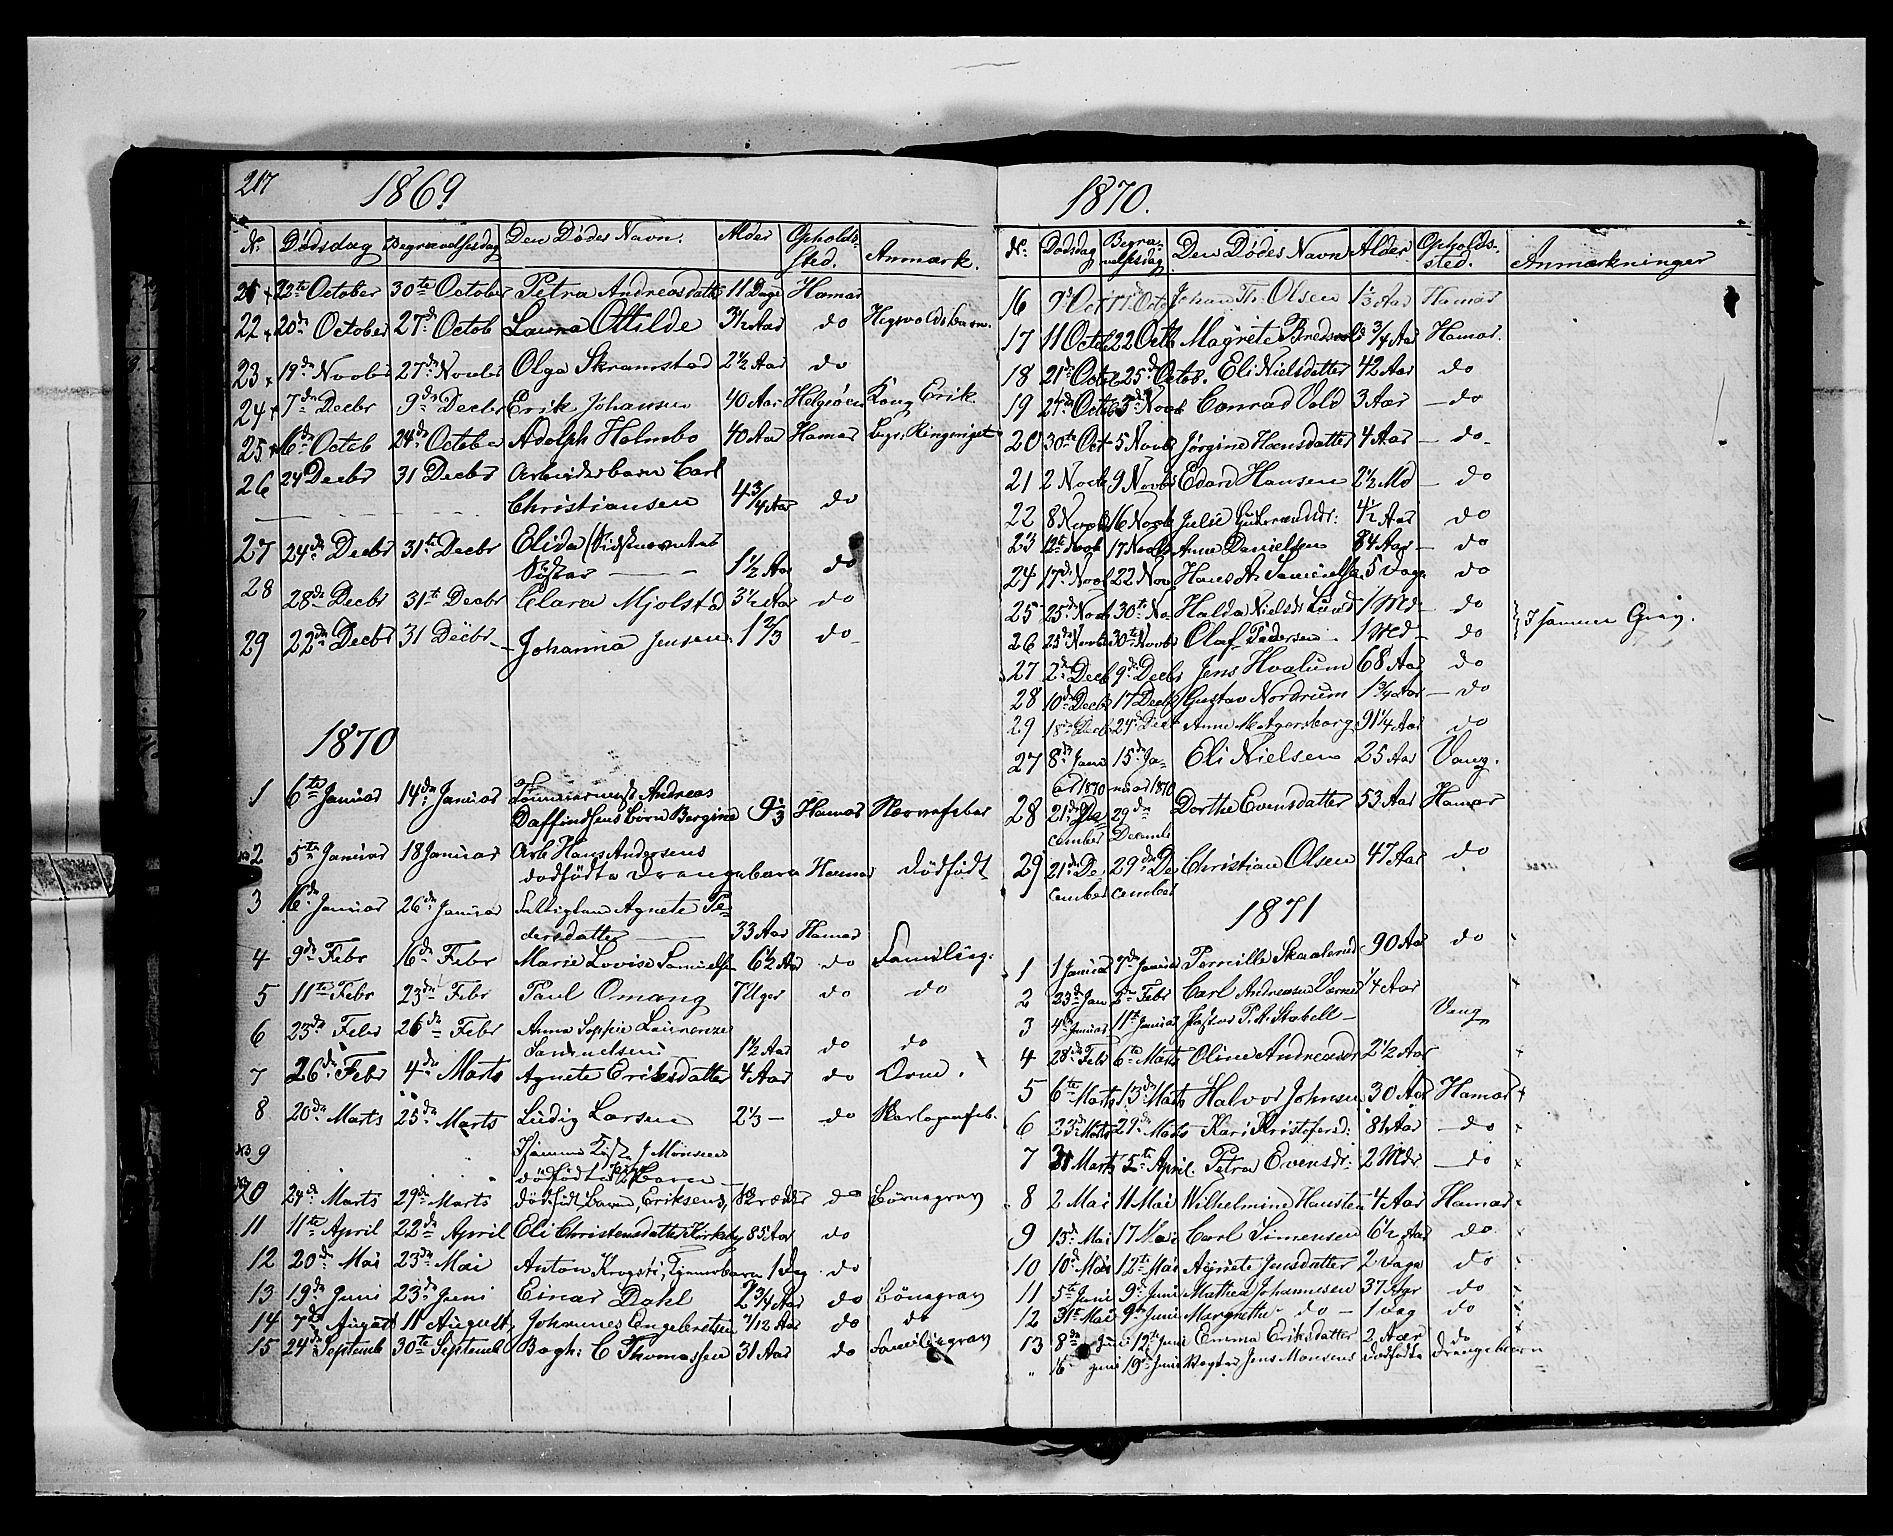 217
1869
Nr. Dödsdag Begravelsesdag Den Dödes Navn. Alder Opholdssted. Anmærk.
21 22te October 30te October Petra Andreasdatte 11 Dage Hamar
22 20de October 27de Octob Laura Ottilde 3½ Aar do
23 19de Novbr 27de Novbr Olga Skramstad 2½ Aar do
24 7de Decbr 9de Decbr Erik Johansen 40 Aar Helgöen Kong Erik
25 6de Octob 24de Octobe Adolph Holmbo 40 Aar Hamar
26 24 Decbr 31 Decbr Arbeidsbarn Carl
Christiansen 4¾ Aar do
27 24de Decbr 31te Decbr Elida (Sidstnævntes
Söster 1½ Aar do
28 28de Decbr 31te Decbr Clara Mjolstad 3½ Aar do
29 22de Decbr 31 Decbr Johanna Jensen 1 2/3 do
1870
1 6te Januar 14de Januar Andreas
Börn Bergine 9 1/3 Hamar Nervefeber
2 5te Januar 18 Januar Arb. Hans Andersens
dödfödte Drangebarn Hamar Dödfödt
3 16de Januar 26de Januar Agnete Pe-
dersdatter 33 Aar Hamar
4 9de Febr 16de Febr Marie Lovise Samuels 6½ Aar do
5 11te Febr 23de Febr Paul Omang 7 Uger do do
6 23de Febr 26de Febr Anna Sophie Laurenze
Samuelsen 1½ Aar do do
7 26de Febr 4de Marts Agnete Eriksdatter 4 Aar do
8 20de Marts 25de Marts Ludvig Larsen 2⅓ do Skarlagensfeb.
9
dödfödte Barn
10 24de Marts 29de Marts dödfödt Barn, Eriksens, do Börnegrav
11 11te April 22de April Eli Christensdatter Kirkeby 85 Aar do
12 20de Mai 23de Mai Anton 1 dag do
13 19de Juni 23de Juni Einar Dahl 2¾ Aar do Börnegrav
14 7de August 11 August Johannes Engebretsen 7/12 Aar do do
15 24de Septemb 30te Septemb Bogh: C Thomassen 31 Aar do Familiegrav
1870.
Nr. Dødsdag Begravelsesdag Den Dödes Navn Alder Opholdssted. Anmærkninger
16 9de Oct 11 Octo Johan Th. Olsen 1⅓ Aar Hamar
17 11 Octob 22 Octb Magrete ¾ Aar Hamar.
18 21de Octob 25de Octob. Eli Nielsdatter 42 Aar do
19 27de Octob 3de Novb Conrad Vold 3 Aar do
20 30te Oct 5 Novb Jørgine Hansdatter 4 Aar do
21 2 Novb 9 Novbr Edard Hansen 2½ Md do
22 8 Novb 16 Novb Julie 4½ Aar do
23 12te Novb 17 Novb Anne Danielsen 84 Aar do
24 17de Novb 22 Nov Hans A. 5 Dage do
25 25de Novb 30te No Halda Nielsdr Lund 1 Md do
26 25de Novbr 30te Novbr Olaf Pedersen 1 Md do } I samme Grav.
27 2de Decb 9de Decbr Jens Hvalum 68 Aar do
28 10de Decbr 17 Decbr Gustav Nordrum 1¾ Aar do
29 18de Decb 24de Decb Anne M. Agersborg 91¼ Aar do
27 8de Janu 15de Ja- Eli Nielsen 25 Aar Vang.
ar 1870 nuar 1870
28 21de De- 29de Dorthe Evensdatter 53 Aar Hamar
cember Decemb
29 21de De 29de De Christian Olsen 47 Aar do
cember cember
1871
1 1 Januar 7de Januar Pernille 90 Aar do
2 23de Jan 5te Febr Carl Andreasen ¼ Aar
3 4de Januar 11te Januar Pastor P. A. Stabell Vang
4 28de Febr 6te Marts Oline Andreasdr 2½ Aar
5 6te Marts 13de Marts Halvor Johnsen 30 Aar Hamar
6 23de Marts 29de Marts Kari Kristofersd: 81 Aar do
7 31 Marts 5te April. Petra Evensdr: 2 Mdr do
8 2 Mai 11 Mai Wilhelmine Hansten 4 Aar Hamar
9 13de Mai 17 Mai Carl Simensen 6½ Aar do
10 10de Mai 12te Mai Agnete Jensdatter 2 Dage do
11 5te Juni 9de Juni Mathea Johannesen 37 Aar do
12 31te Mai 9de Juni Margrethe do 1 Dag do
13 8de Juni 12te Juni Emma Eriksdatter 2 Aar do
„ 16 Juni 19de Juni Jens Monsens dødfødte Drangebarn